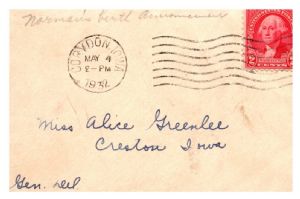 Norman's birth Announcement
CORYDON, IOWA
MAY 4
2-PM
1932
2 CENTS 2
Miss Alice Greenlee
Creston Iowa
Gen. Del